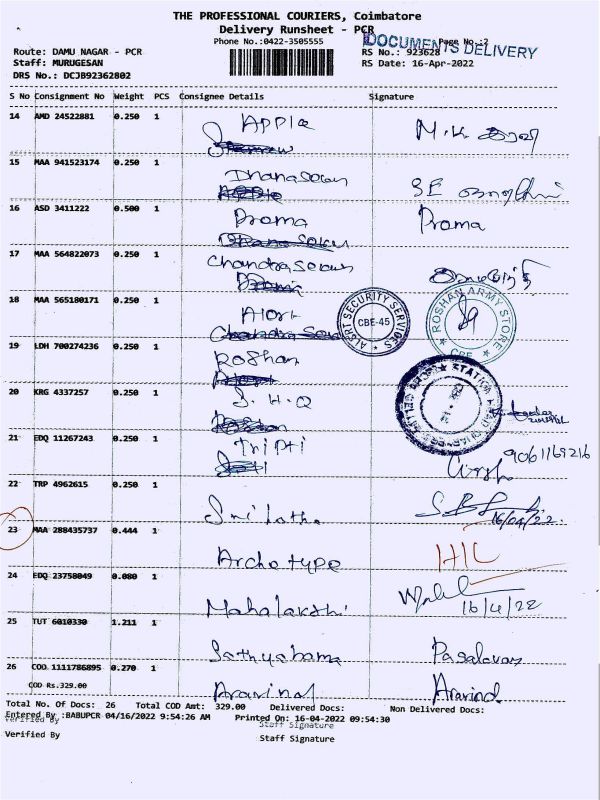 THE PROFESSIONAL COURIERS, Coimbatore
Delivery Runsheet - PCR
Phone No.:0422-3505555 Page No.:2
DOCUMENTS DELIVERY
Route: DAMU NAGAR - PCR RS No.: 923628
Staff: MURUGESAN RS Date: 16-Apr-2022
DRS No.: DCJB92362802
S No Consignment No Weight PCS Consignee Details Signature
14 AMD 24522881 0.250 1 Apple M.K.
15 MAA 941523174 0.250 1 Dhanasekar
16 ASD 3411222 0.500 1 Proma Proma
17 MAA 564822073 0.250 1 Chandrasekar
18 MAA 565180171 0.250 1 Alert
ALERT SECURITY SERVICES CBE-45
ROSHAN ARMY STORE CBE
19 LDH 700274236 0.250 1 Roshan
20 KRG 4337257 0.250 1 S. H. Q
STATION HEAD QUARTERS
21 EDQ 11267243 0.250 1 Tripti 9061169216
22 TRP 4962615 0.250 1 Srilatha 16/04/22
23 MAA 288435737 0.444 1 Archetype H/C
24 EDQ 23758049 0.080 1 Mahalakshi 16/4/22
25 TUT 6010330 1.211 1 Sathyabama Pagalavan
26 COD 1111786895 0.270 1 Aravind Aravind
COD Rs.329.00
Total No. Of Docs: 26 Total COD Amt: 329.00 Delivered Docs: Non Delivered Docs:
Entered By :BABUPCR 04/16/2022 9:54:26 AM Printed On: 16-04-2022 09:54:30
Verified By Staff Signature
Verified By Staff Signature